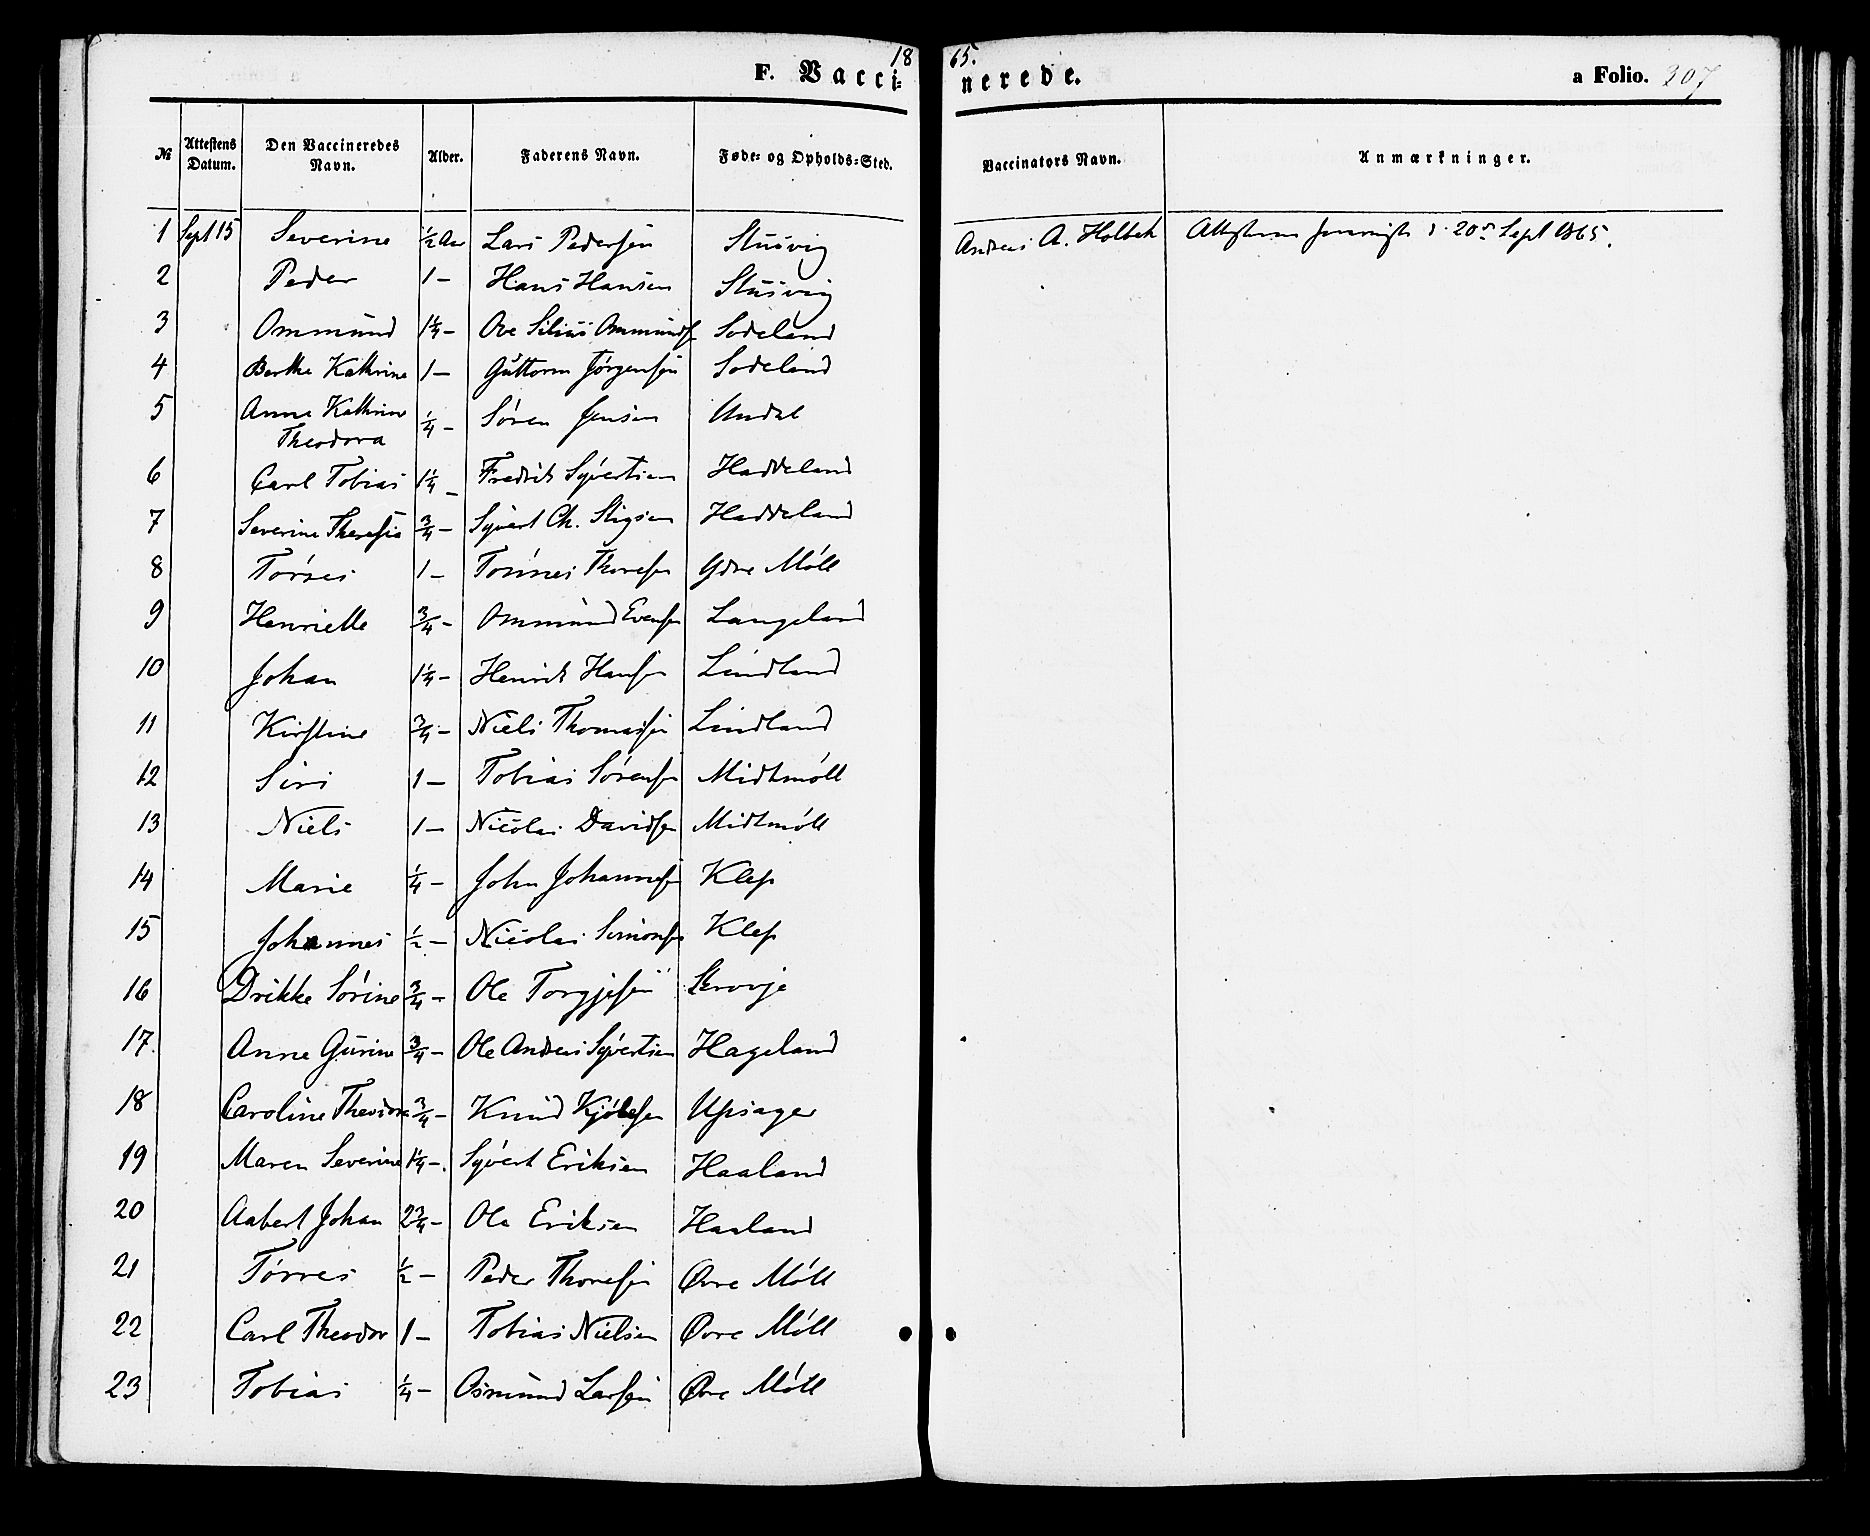 1865.
F. Vaccinerede.
a Folio. 307
№ Attestens Datum. Den Vaccineredes Navn. Alder. Faderens Navn. Føde- og Opholds-Sted. Vaccinators Navn. Anmærkninger.
1 Sept 15 Severine ½ Aar Lars Pedersen Stusvig Andreas A. Holbek 20de Sept 1865.
2 Peder 1 - Hans Hansen Stusvig
3 Ommund 1¼ - Ove Silius Ommunds Sodeland
4 Berthe Kathrine 1 - Guttorm Jørgensen Sodeland
5 Anne Kathrine
Theodora ¼ - Søren Jensen Undal
6 Carl Tobias 1¼ - Fredrik Syvertsen Haddeland
7 Severine Theresia ¾ - Syvert Ch. Stigsen Haddeland
8 Tørres 1 - Tønnes Thoresen Ydre Møll
9 Henriette ¾ - Ommund Evensen Langeland
10 Johan 1¼ - Henrik Hansen Lindland
11 Kirstine ¾ - Niels Thomassen Lindland
12 Siri 1 - Tobias Sørensen Midtmøll
13 Niels 1 - Nicolai Davidsen Midtmøll
14 Marie ¼ - John Johannesen Klep
15 Johannes ½ - Nicolai Simonsen Klep
16 Drikke Sørine ¾ - Ole Torgjesen Skrovje
17. Anne Gurine ¾ - Ole Andreas Syvertsen Hageland
18 Caroline Theodora ¾ - Knud Kjølesen Upsager
19 Maren Severine 1¼ - Syvert Eriksen Haaland
20 Aabert Johan 2¾ - Ole Eriksen Haaland
21 Tørres ½ - Peder Thoresen Øvre Møll
22 Carl Theodor 1 - Tobias Nielsen Øvre Møll
23 Tobias ¼ - Osmund Larsen Øvre Møll